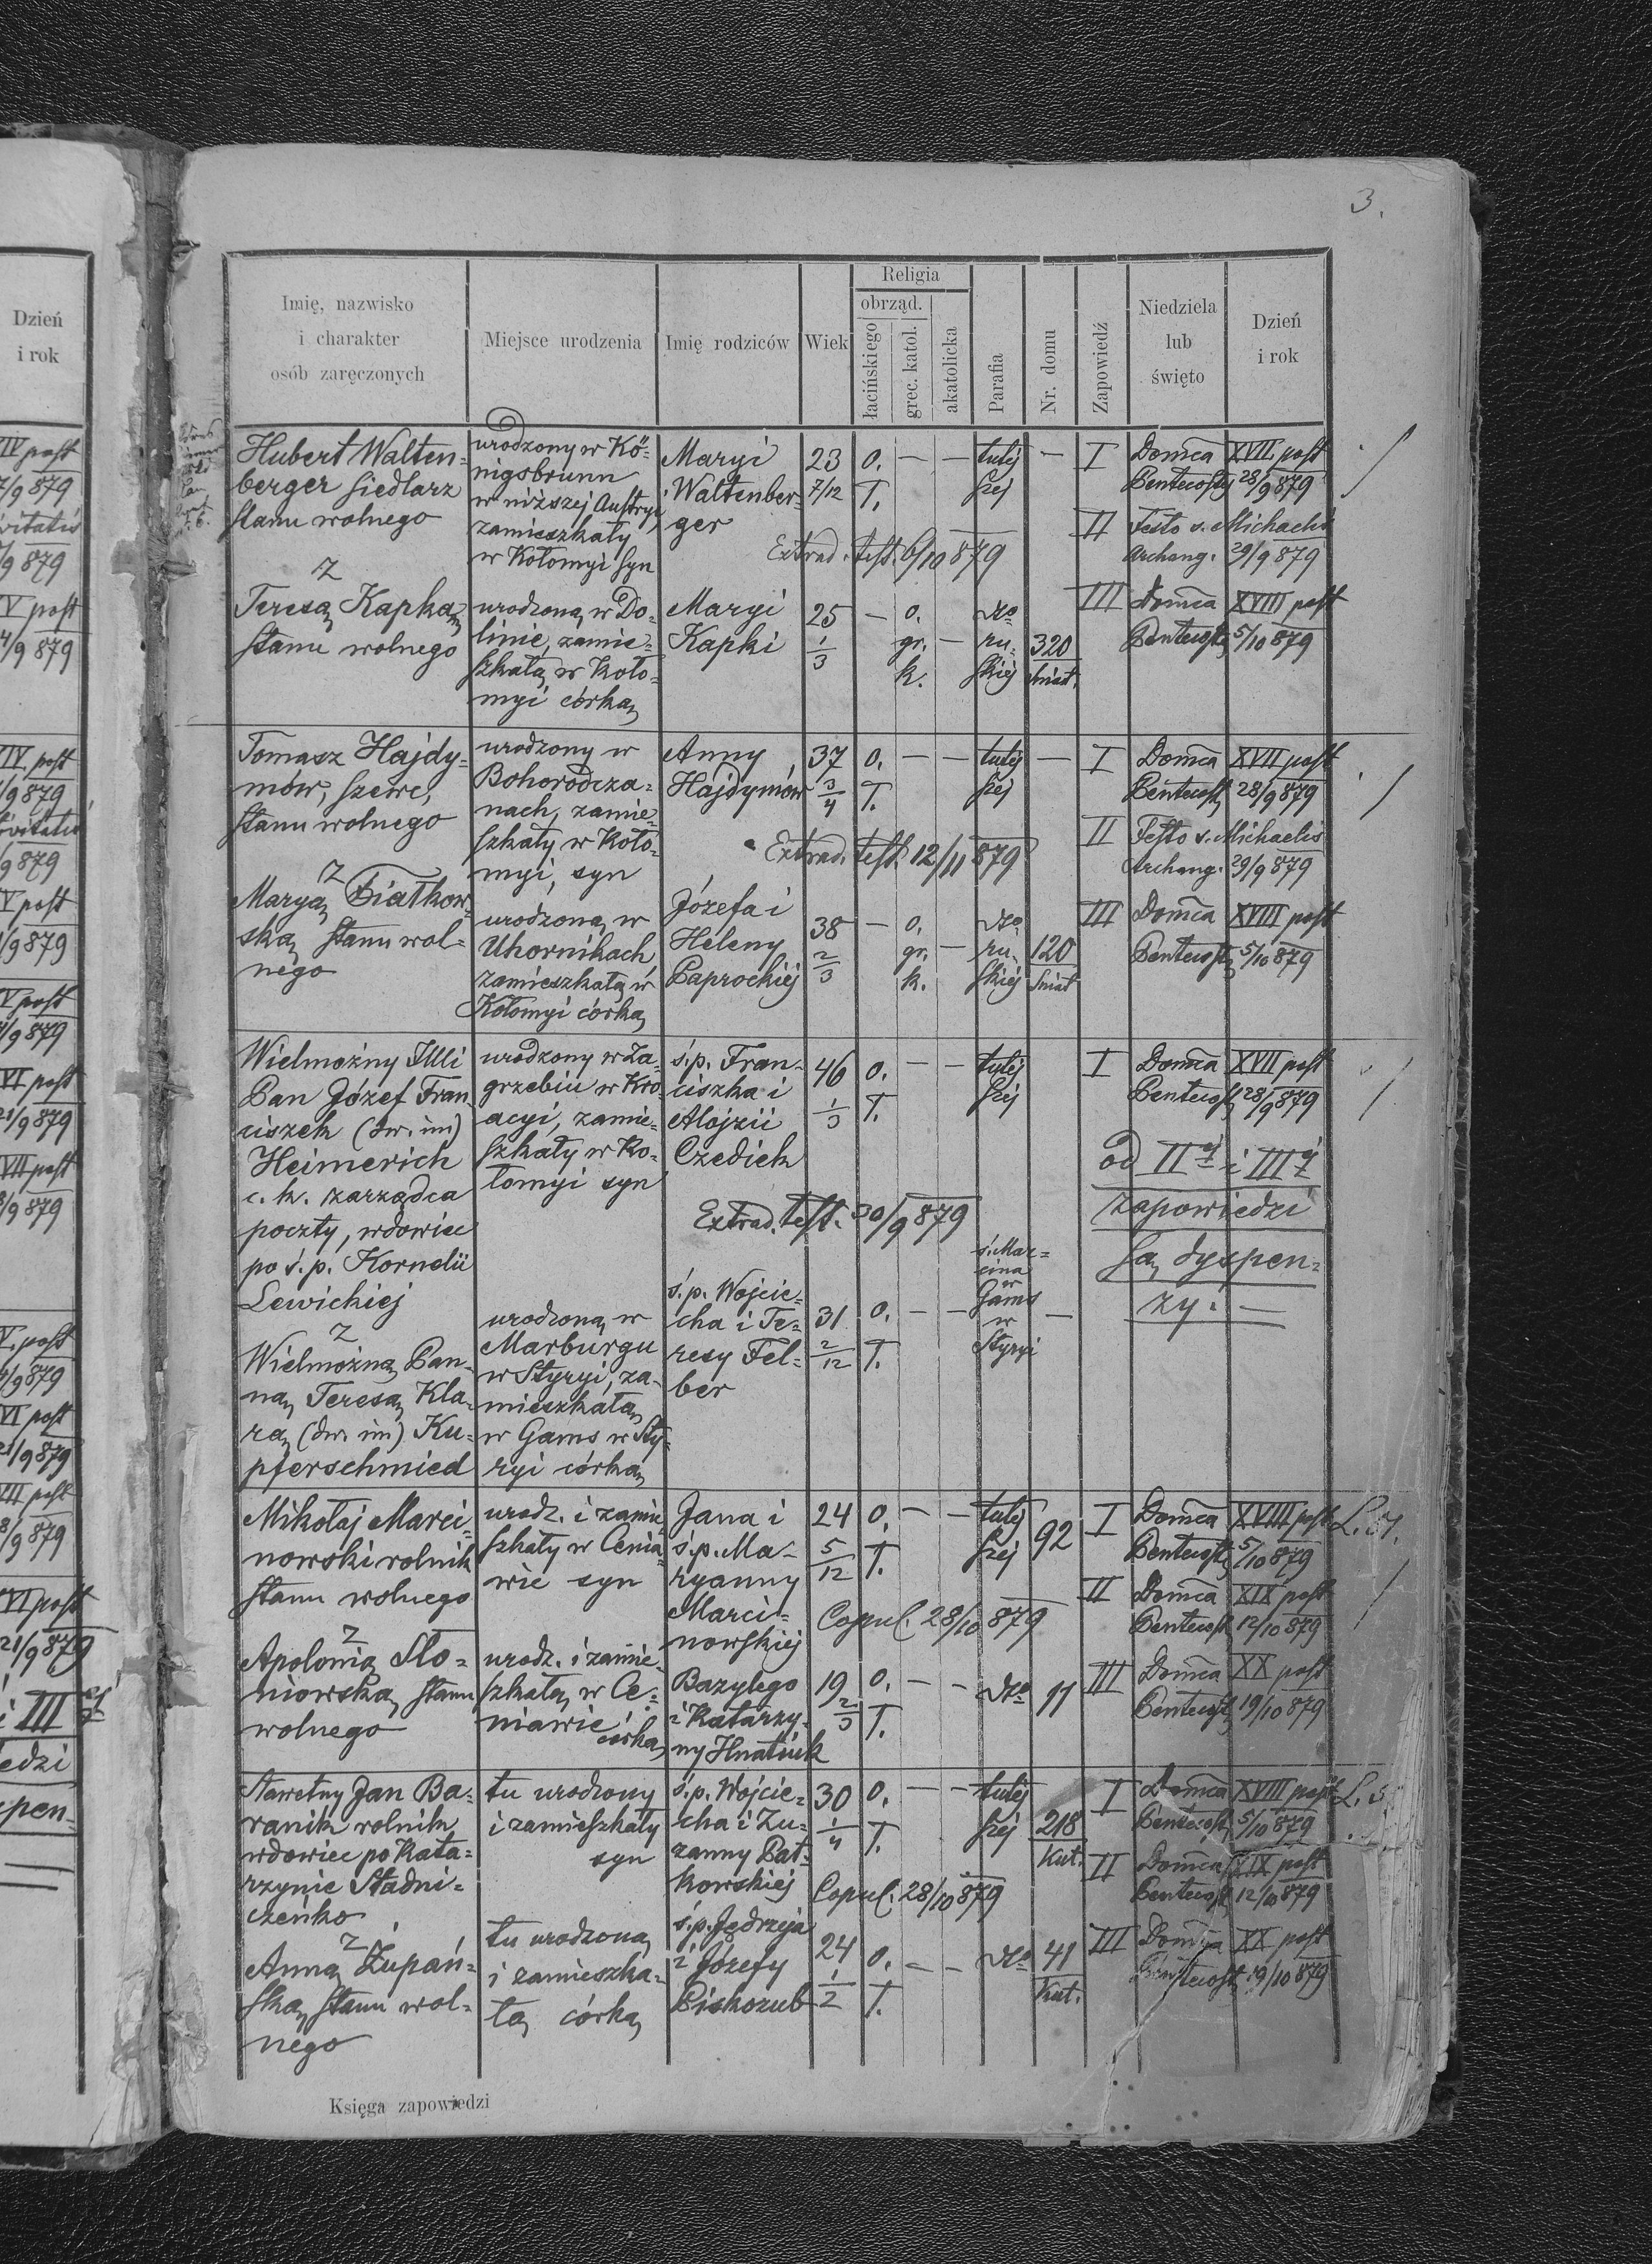 3.
Dzień
i rok
Religia
obrząd.
Imię, nazwisko
i charakter
osób zaręczonych
Miejsce urodzenia
Imię rodziców
Wiek
łacińskiego
grec. katol.
akatolicka
Parafia
Nr. domu
Zapowiedź
Niedziela
lub
święto
Dzień
i rok
Hubert Walten-
berger siedlarz
stanu wolnego
urodzony w Kö-
nigsbrunn
w niższej Austryi
zamieszkały
w Kołomyi syn
Maryi
Waltenber-
ger
23 7/12
o. ł. — —
tutej
szej
—
I Domca XVII post
Pentecosty 28/9 879
II Festo s. Michaelis
Archang. 29/9 879
Extrad. test. 6/10 879
z
Teresą Kapką
stanu wolnego
urodzoną w Do-
linie, zamie-
szkałą w Koło-
myi córką
Maryi
Kapki
25 1/3
— o. gr. k. —
ru-
skiej
320
śniat.
III Domca XVIII post
Pentecost. 5/10 879
Tomasz Hajdy-
mów, szewc,
stanu wolnego
urodzony w
Bohorodcza-
nach, zamie-
szkały w Koło-
myi, syn
Anny
Hajdymów
37 3/4
o. ł. — —
tutej
szej
—
I Domca XVII post
Pentecost. 28/9 879
II Festo s. Michaelis
Archang. 29/9 879
Extrad. test. 12/11 879
z
Maryą Białkow-
ską stanu wol-
nego
urodzoną w
Uhornikach
zamieszkałą w
Kołomyi córką
Józefa i
Heleny
Paprockiej
38 2/3
— o. gr. k. —
ru-
skiej
120
śniat
III Domca XVIII post
Pentecost. 5/10 879
Wielmożny Illi
Pan Józef Fran-
ciszek (dw. im)
Heimerich
c. k. zarządca
poczty, wdowiec
po ś. p. Kornelii
Lewickiej
urodzony w Za-
grzebiu w Kro-
acyi, zamie-
szkały w Ko-
łomyi syn
ś. p. Fran-
ciszka i
Alojzii
Czedick
46 1/3
o. ł. — —
tutej
szej
I Domca XVII post
Pentecost. 28/9 879
od IIej i IIIej
zapowiedzi
są dyspen-
zy. —
Extrad. test. 30/9 879
z
Wielmożną Pan-
ną Teresą Kla-
rą (dw. im) Ku-
pferschmied
urodzoną w
Marburgu
w Styryi, za-
mieszkałą
w Gams w Sty-
ryi córką
ś. p. Wojcie-
cha i Te-
resy Fel-
ber
31 2/12
o. ł. — —
ś. Mar-
cina
w
Gams
w
Styryi
—
Mikołaj Marci-
nowski rolnik
stanu wolnego
urodz. i zamie-
szkały w Cenia-
wie syn
Jana i
ś. p. Ma-
ryanny
Marci-
nowskiej
24 5/12
o. ł. — —
tutej
szej
92
I Domca XVIII post
Pentecost. 5/10 879
II Domca XIX post
Pentecost. 12/10 879
Copul. 28/10 879
z
Apolonią Sło-
niowską stanu
wolnego
urodz. i zamie-
szkałą w Ce-
niawie córką
Bazylego
i Katarzy-
ny Hnatiuk
19 2/3
o. ł. — —
11
III Domca XX post
Pentecost. 19/10 879
Sławetny Jan Ba-
ranik rolnik
wdowiec po Kata-
rzynie Stadni-
czeńko
tu urodzony
i zamieszkały
syn
ś. p. Wojcie-
cha i Zu-
zanny Pat-
kowskiej
30 1/4
o. ł. — —
tutej
szej
218
Kut.
I Domca XVIII post
Pentecost. 5/10 879
II Domca XIX post
Pentecost. 12/10 879
Copul. 28/10 879
z
Anną Żupań-
ską, stanu wol-
nego
tu urodzoną
i zamieszka-
łą córką
ś. p. Jędrzeja
i Józefy
Piskozub
24 1/2
o. ł. — —
41
Kut.
III Domca XX post
Pentecost. 19/10 879
Księga zapowiedzi